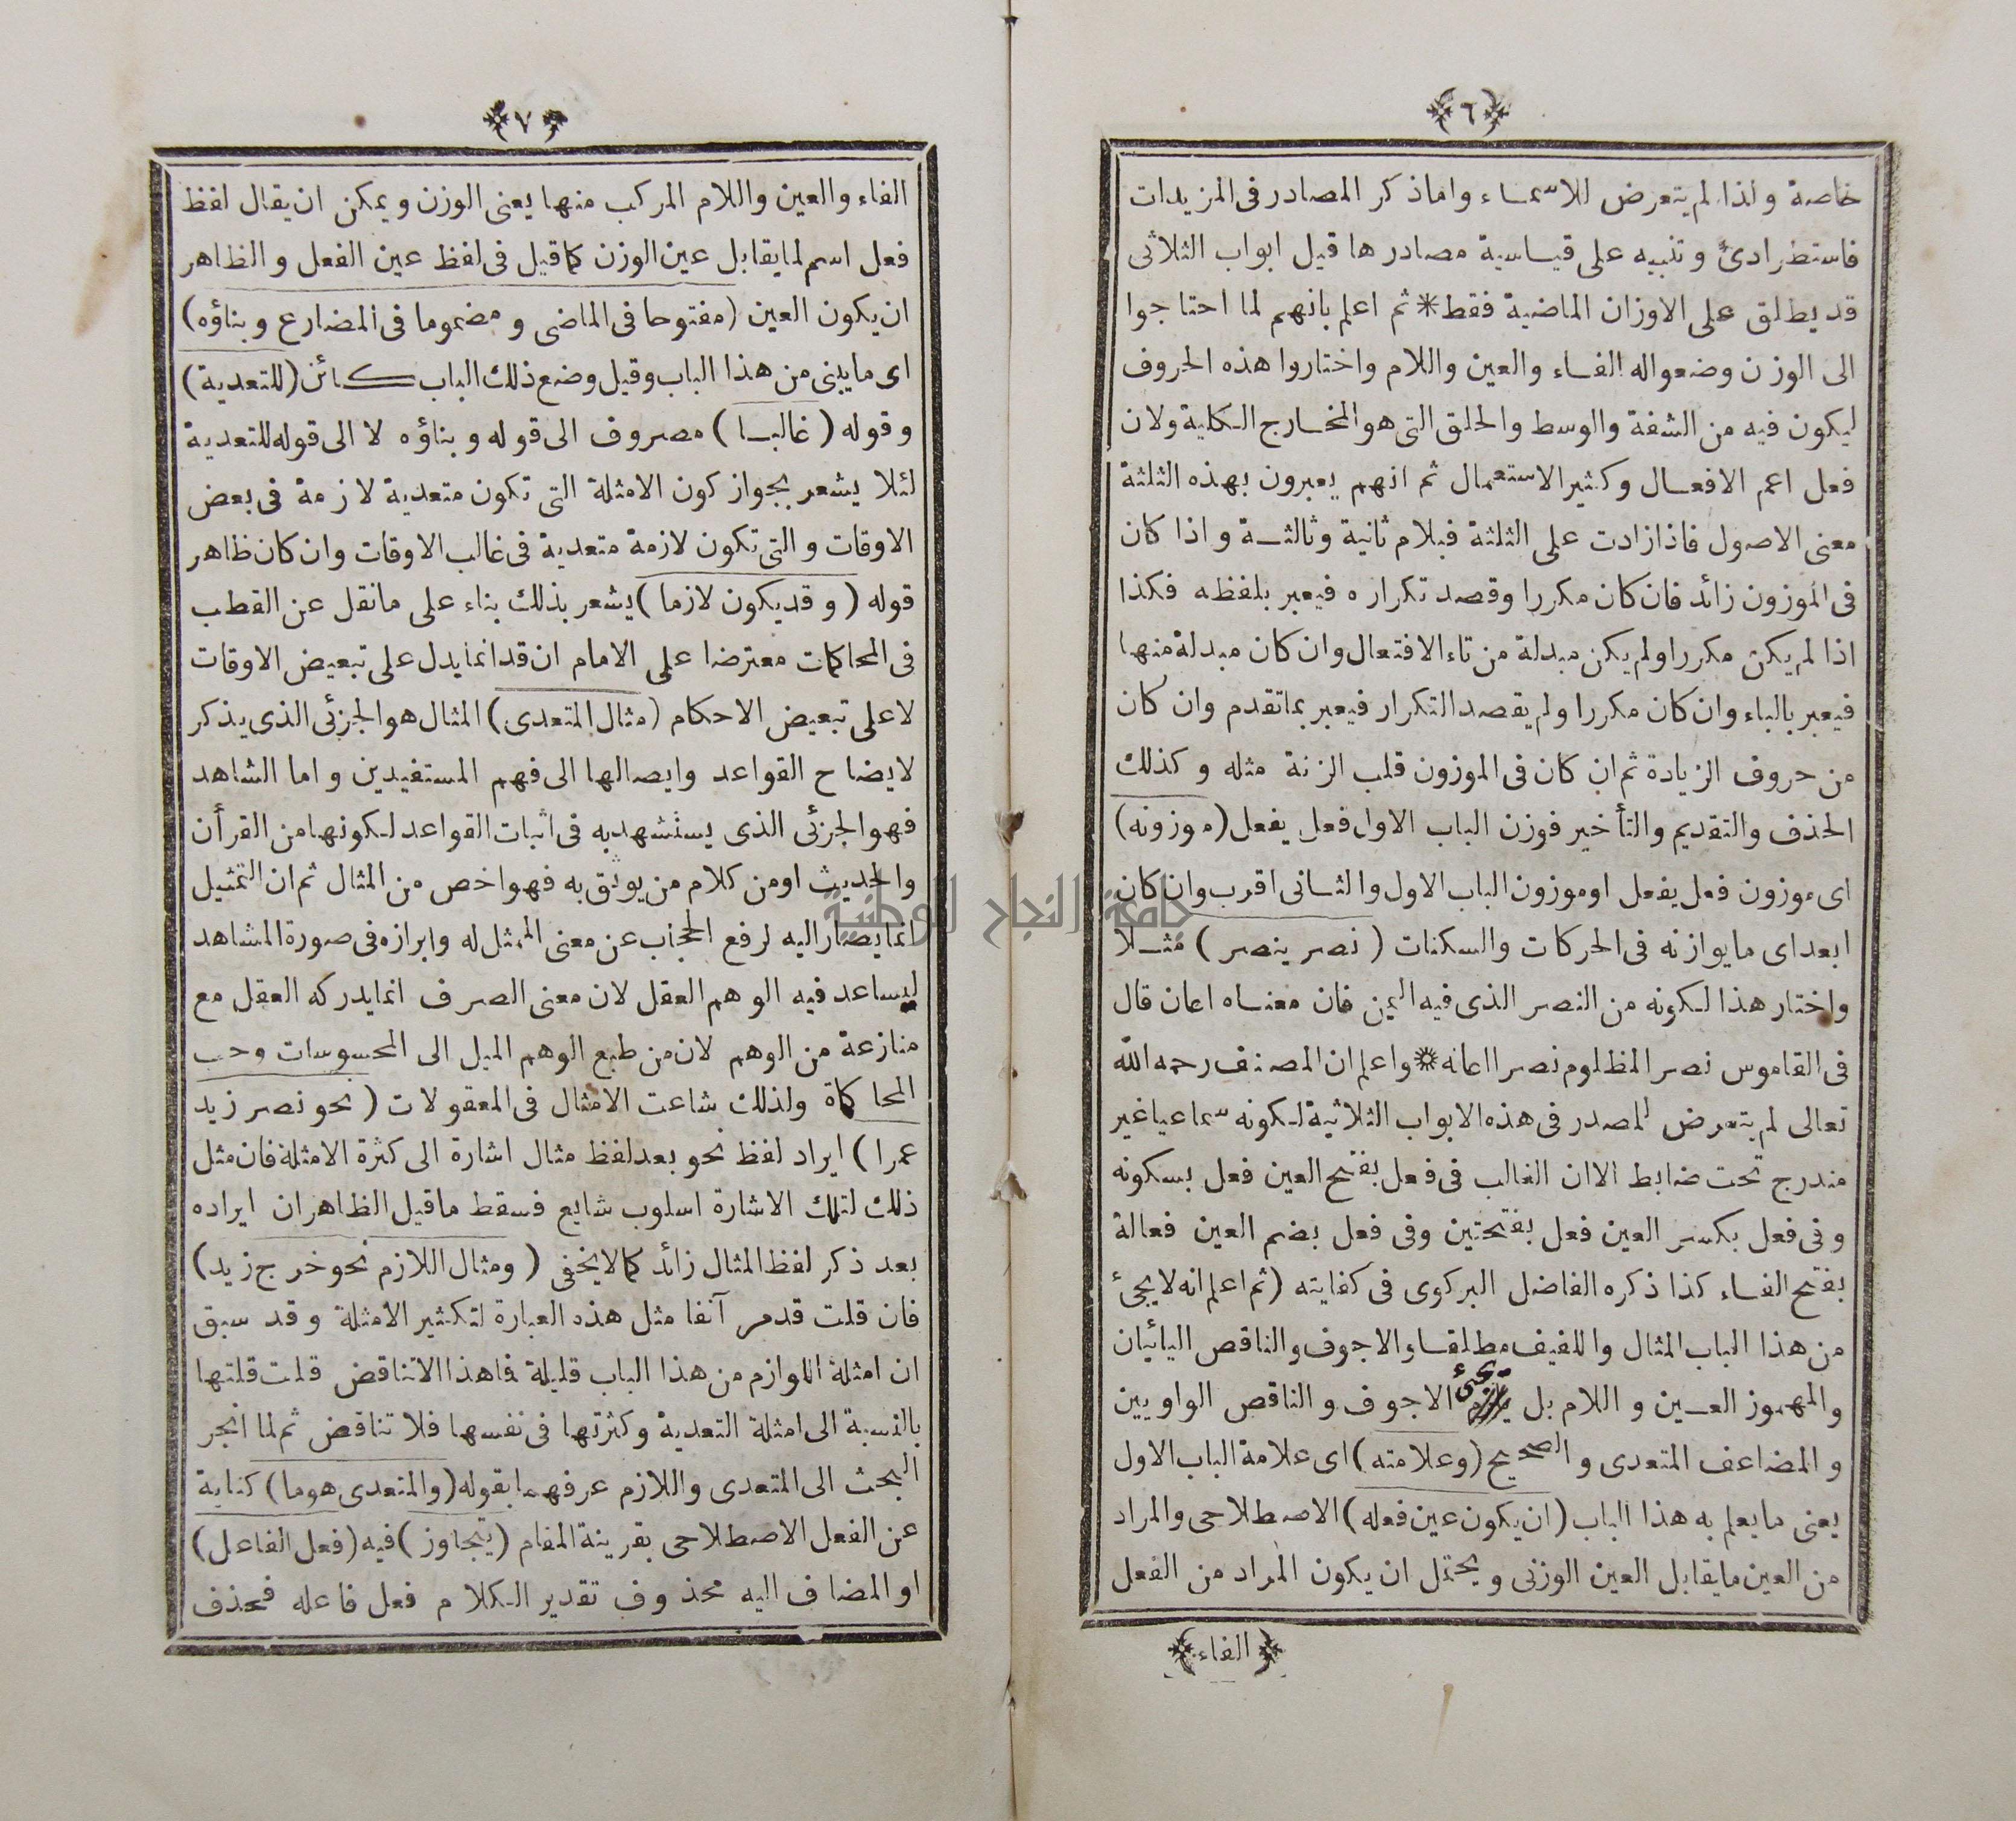 ﴿٦﴾
خاصة ولذا لم يتعرض للاسماء واما ذكر المصادر فى المزيدات
فاستطرادئ وتنبيه على قياسية مصادرها قيل ابواب الثلاثى
قد يطلق على الاوزان الماضية فقط * ثم اعلم بانهم لما احتاجوا
الى الوزن وضعواله الفاء والعين واللام واختاروا هذه الحروف
ليكون فيه من الشفة والوسط والحلق التى هو المخارج الكلية ولان
فعل اعم الافعال وكثير الاستعمال ثم انهم يعبرون بهذه الثلثة
معنى الاصول فاذا زادت على الثلثة فبلام ثانية وثالثة واذا كان
فى الموزون زائد فان كان مكررا وقصد تكراره فيعبر بلفظه فكذا
اذا لم يكن مكررا ولم يكن مبدلة من تاء الافتعال وان كان مبدلة منها
فيعبر بالباء وان كان مكررا ولم يقصد التكرار فيعبر بما تقدم وان كان
من حروف الزيادة ثم ان كان فى الموزون قلب الزنة مثله وكذلك
الحذف والتقديم والتأخير فوزن الباب الاول فعل يفعل (موزونه)
اى موزون فعل يفعل او موزون الباب الاول والثانى اقرب وان كان
ابعد اى ما يوازنه فى الحركات والسكنات (نصر ينصر) مثلا
واختار هذا لكونه من النصر الذى فيه اليمن فان معناه اعان قال
فى القاموس نصر المظلوم نصرا اعانه * واعلم ان المصنف رحمه الله
تعالى لم يتعرض لمصدر فى هذه الابواب الثلاثية لكونه سماعيا غير
مندرج تحت ضابط الا ان الغالب فى فعل بفتح العين فعل بسكونه
وفى فعل بكسر العين فعل بفتحتين وفى فعل بضم العين فعالة
بفتح الفاء كذا ذكره الفاضل البركوى فى كفايته (ثم اعلم انه لا يجئ
من هذا الباب المثال واللفيف مطلقا والاجوف والناقص اليائيان
والمهموز العين واللام بل يجئ الاجوف والناقص الواويين
والمضاعف المتعدى والصحيح (وعلامته) اى علامة الباب الاول
يعنى ما يعلم به هذا الباب (ان يكون عين فعله) الاصطلاحى والمراد
من العين ما يقابل العين الوزنى ويحتمل ان يكون المراد من الفعل
﴿الفاء﴾
﴿٧﴾
الفاء والعين واللام المركب منها يعنى الوزن ويمكن ان يقال لفظ
فعل اسم لما يقابل عين الوزن كما قيل فى لفظ عين الفعل والظاهر
ان يكون العين (مفتوحا فى الماضى ومضموما فى المضارع وبناؤه)
اى ما يبنى من هذا الباب وقيل وضع ذلك الباب كائن (للتعدية)
وقوله (غالبا) مصروف الى قوله وبناؤه لا الى قوله للتعدية
لئلا يشعر بجواز كون الامثلة التى تكون متعدية لازمة فى بعض
الاوقات والتى تكون لازمة متعدية فى غالب الاوقات وان كان ظاهر
قوله (وقد يكون لازما) يشعر بذلك بناء على ما نقل عن القطب
فى المحاكمات معترضا على الامام ان قد انما يدل على تبعيض الاوقات
لا على تبعيض الاحكام (مثال المتعدى) المثال هو الجزئى الذى يذكر
لايضاح القواعد وايصالها الى فهم المستفيدين واما الشاهد
فهو الجزئى الذى يستشهد به فى اثبات القواعد لكونها من القرأن
والحديث او من كلام من يوثق به فهو اخص من المثال ثم ان التمثيل
انما يصار اليه لرفع الحجاب عن معنى الممثل له وابرازه فى صورة المشاهد
ليساعد فيه الوهم العقل لان معنى الصرف انما يدركه العقل مع
منازعة من الوهم لان من طبع الوهم الميل الى المحسوسات وحب
المحاكاة ولذلك شاعت الامثال فى المعقولات (نحو نصر زيد
عمرا) ايراد لفظ نحو بعد لفظ مثال اشارة الى كثرة الامثلة فان مثل
ذلك لتلك الاشارة اسلوب شايع فسقط ما قيل الظاهر ان ايراده
بعد ذكر لفظ المثال زائد كما لا يخفى (ومثال اللازم نحو خرج زيد)
فان قلت قد مر آنفا مثل هذه العبارة لتكثير الامثلة وقد سبق
ان امثلة اللوازم من هذا الباب قليلة فاهذا الا تناقض قلت قلتها
بالنسبة الى امثلة التعدية وكثرتها فى نفسها فلا تناقض ثم لما انجر
البحث الى المتعدى واللازم عرفهما بقوله (والمتعدى هو ما) كناية
عن الفعل الاصطلاحى بقرينة المقام (يتجاوز) فيه (فعل الفاعل)
او المضاف اليه محذوف تقدير الكلام فعل فاعله فحذف
جامعة النجاح الوطنية